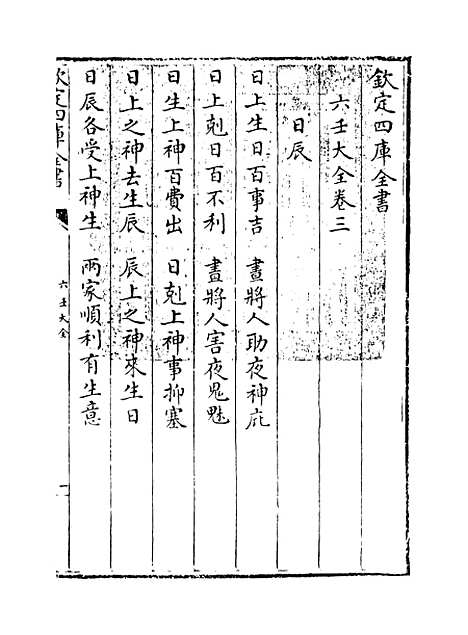 欽定四庫全書
六壬大全卷三
日辰
日上生日百事吉 晝將人助夜神庇
日上剋日百不利 晝將人害夜鬼魅
日生上神百費出 日剋上神事抑塞
日上之神去生辰 辰上之神來生日
日辰各受上神生 兩家順利有生意
欽定四庫全書
六壬大全
一